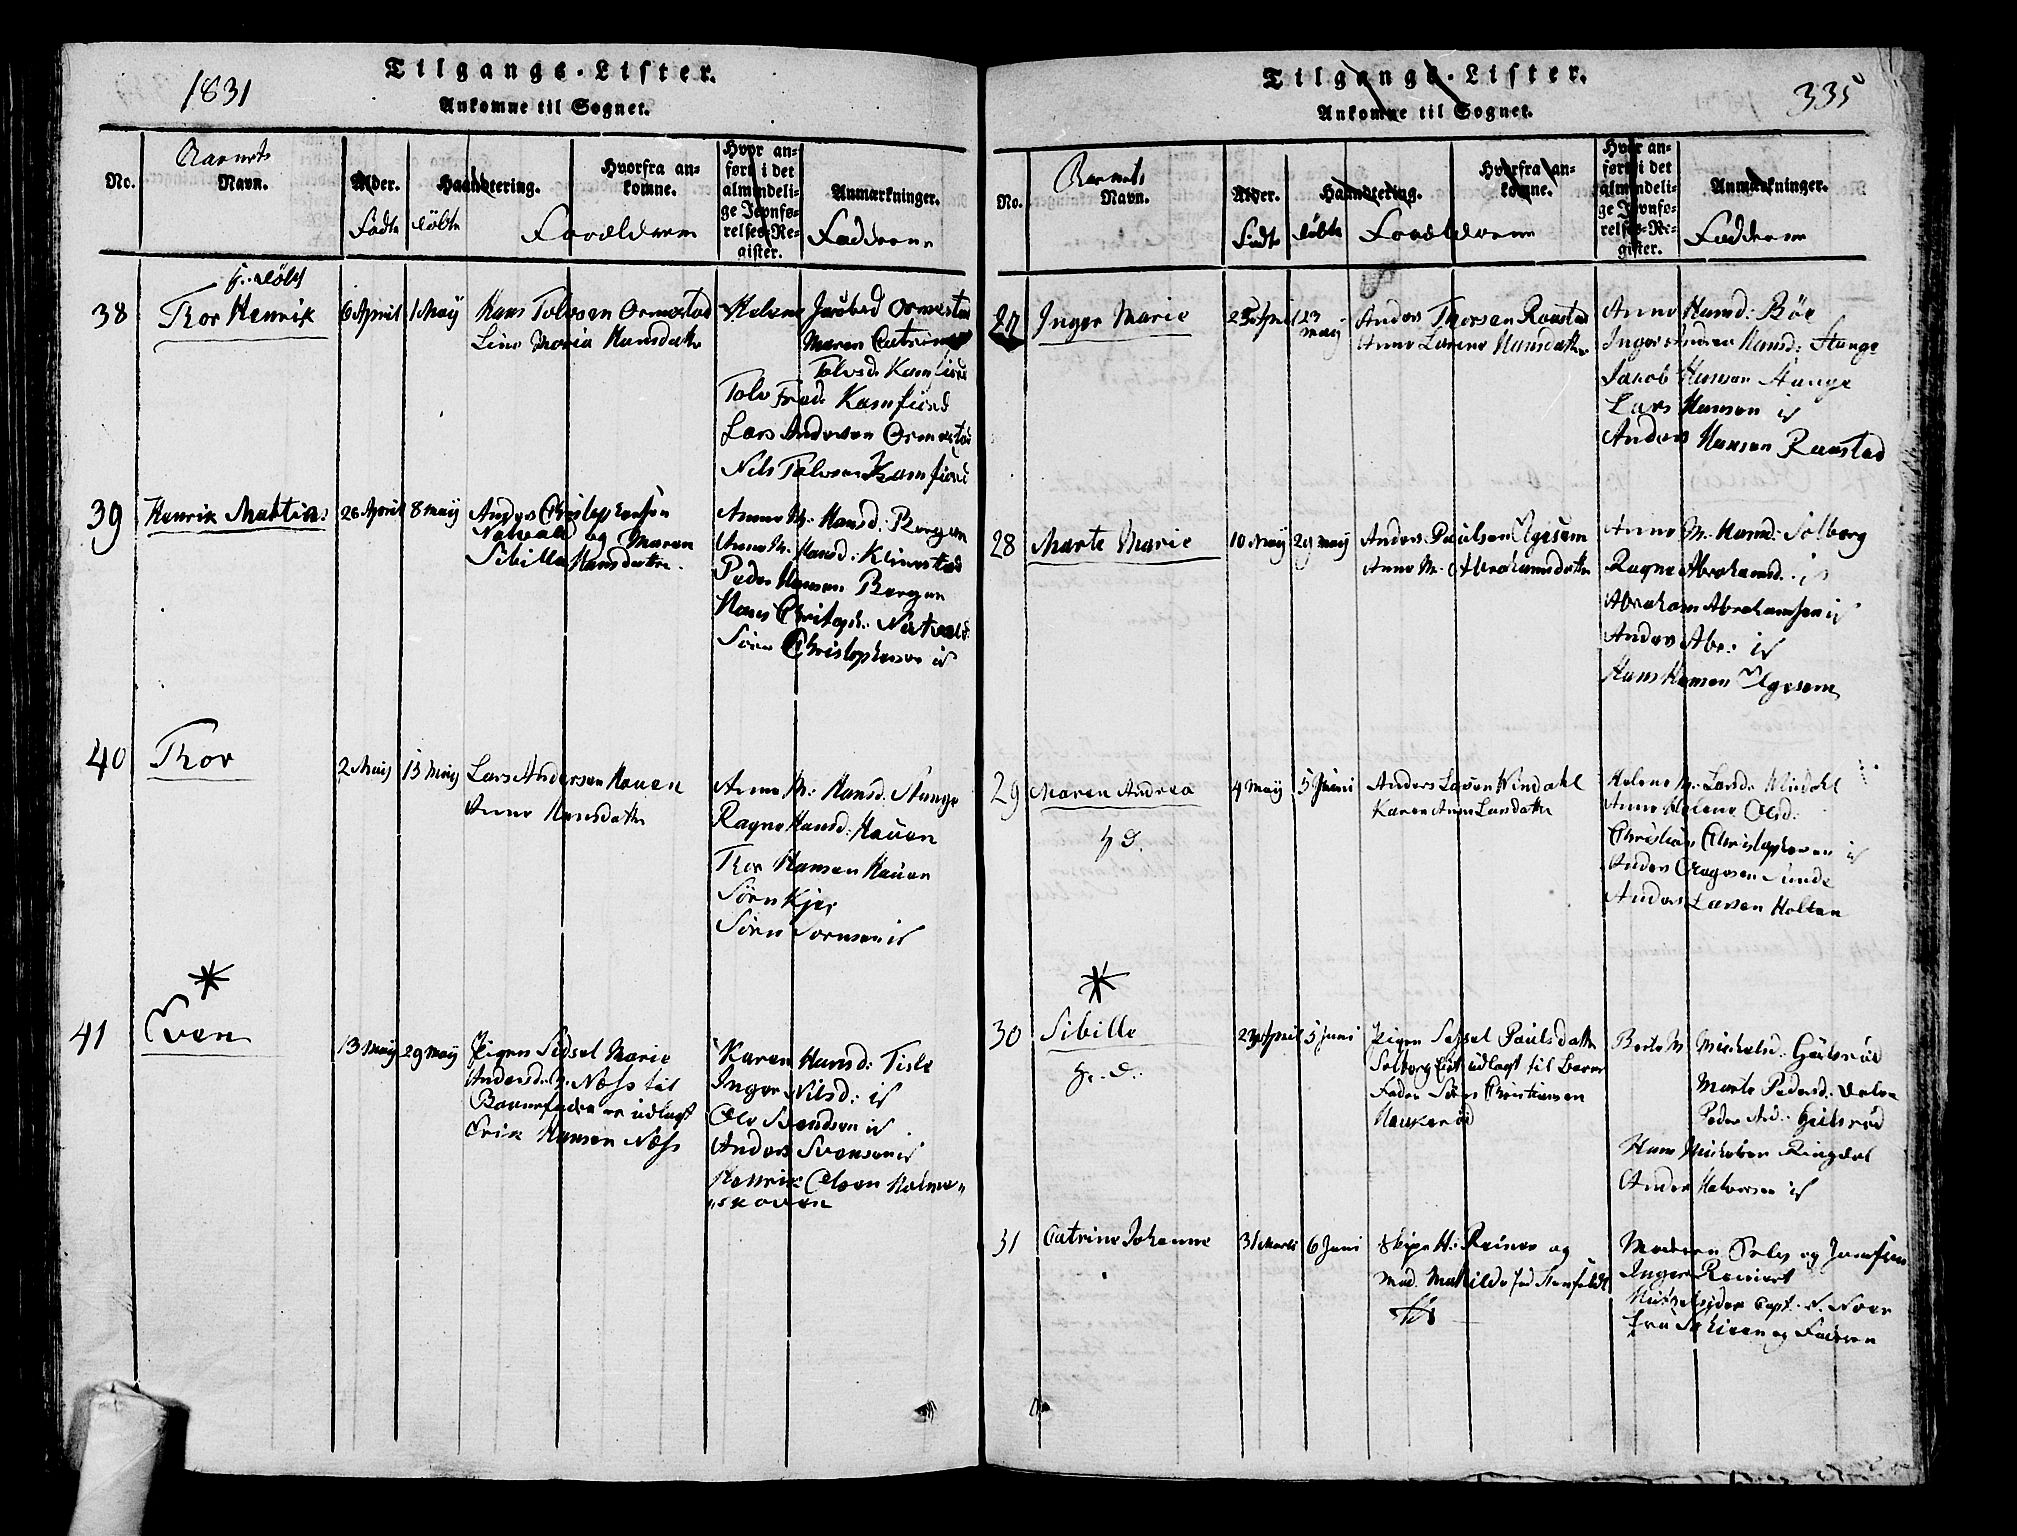 1831
Tilgangs-Lister.
Ankomne til Sognet.
No.
Barnets
Navn.
Alder.
Født
døbt
Haandtering.
Hvorfra an-
komne.
Forældrene
Hvor an-
ført i det
almindeli-
ge Jevnfø-
relses-Re-
gister.
Anmærkninger.
Faddere
38
Thor Henrik
6 April
1 May
Hans Tolvsen Ormestad
Line Maria Hansdatter
Helene Jacobsd Ormestad
Maren Catrine
Tolvsd. Kamfiord
Tolv Fred: Kamfiord
Lars Andersen Ormestad
Nils Tolvsen Kamfiord
39
Henrik Mattias
26 April
8 May
Anders Christophersen
Natvald og Maren
Sibilla Hansdatter.
Anne M: Hansd: Bergan
Anne M: Hansd: Klinestad
Peder Hansen Bergan
Hans Christoph: Natvald
Sören Christophersen id
40
Thor
2 Maij
15 Maij
Lars Andersen Hauen
Anne Hansdatter
Anne M: Hansd. Stange
Ragne Hansd: Hauen
Thor Hansen Hauen
Sörn Kjær
Sörn Sörnsen id
41
Even
13 May
29 May
Pigen Sidsel Marie
Andersd: Næss til
Barnefader er udlagt
Erik Hansen Næss
Karen Hansd: Tisle
Inger Nilsd: id
Ole Svendsen id
Anders Svensen id
Henrik Olsen Holme-
skoven
Tilgangs-Lister.
Ankomne til Sognet.
335
No.
Barnets
Navn.
Alder.
Født
døbt
Haandtering.
Hvorfra an-
komne.
Forældrene
Hvor an-
ført i det
almindeli-
ge Jevnfø-
relses-Re-
gister.
Anmærkninger.
Faddere
27
Inger Marie
25 April
23 May
Anders Thorsen Raastad
Anne Larine Hansdatter
Anne Hansd: Böe
Inger Andrea Hansd: Stange
Jakob Hansen Stange
Lars Hansen id
Anders Hansen Raastad
28
Marte Marie
10 May
29 May
Anders Paulsen Elgesem
Anne M. Abrahamsdatter
Anne M. Hansd: Solberg
Ragne Abrahamsd. id
Abraham Abrahamsen id
Anders Abr: id
Hans Hansen Elgesem
29
Maren Andrea
4 May
5 Juni
Anders Larsen Vindahl
Karen Anne Larsdatter
Helene M. Larsd. Vindahl
Anne Helene Olsd:
Christian Christophersen id
Anders Aagesen Sunde
Anders Larsen Holten
30
Sibille
29 April
5 Juni
Pigen Sidsel Paulsdatter
Solberg Eiet udlagt til Barne
Fader Sörn Christiansen
Haukeröd
Berte M Mickelsd. Gulsröd
Marte Pedersd.
Peder And: Gulsröd
Hans Mickelsen Ringdal
Anders Halvorsen id
31
Catrine Johanne
31 Marts
6 Juni
Skipr H: Reiner og
Mad. Mathilde
Madam og Jomfru
Inger Reinert
Capt. N.
Fru og Faderen